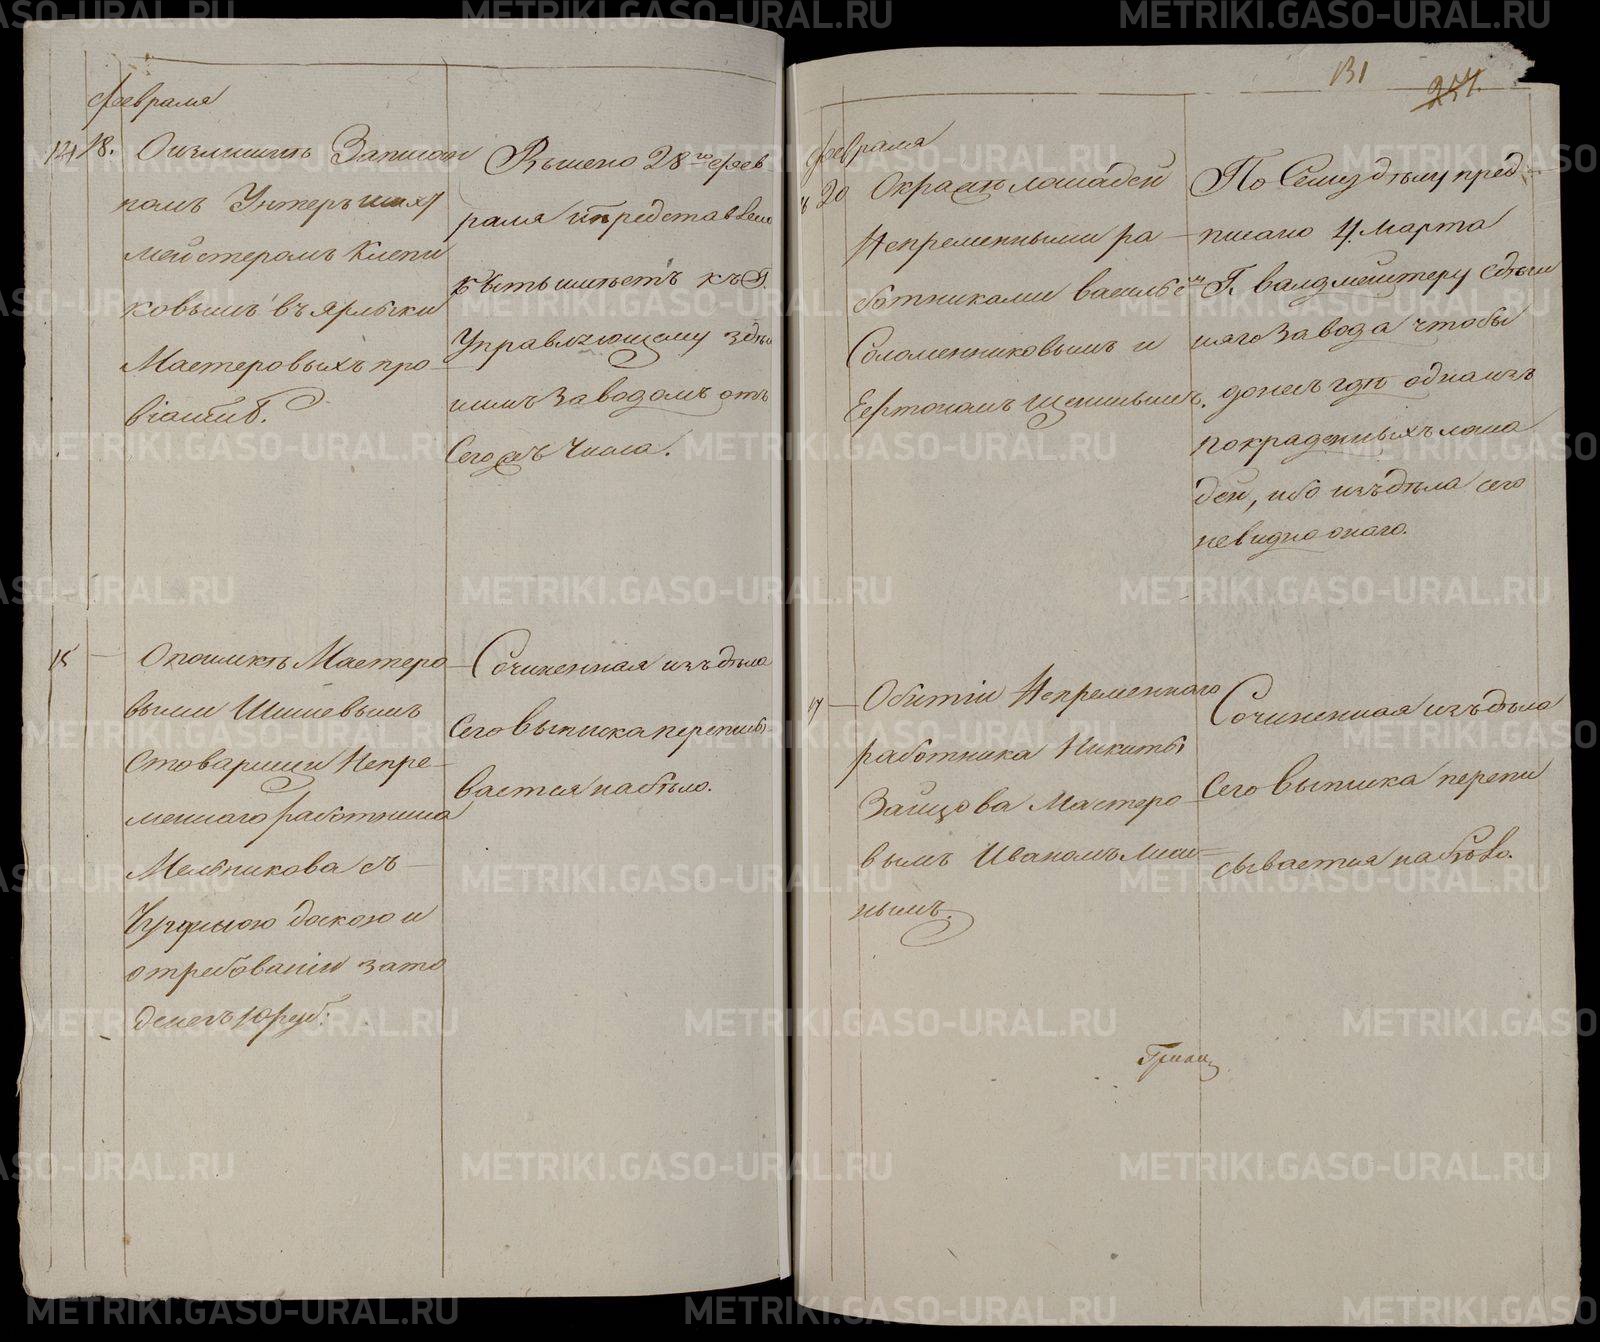 февраля
14 18. О излишнѣ Записан
номъ Унтеръ шихт
мейстеромъ Клепи
ковымъ въ ярлыки
Мастеровыхъ про
віантѣ.
Рѣшено 28го фев
раля и представлено
къ Управляющему здѣш
нимъ заводомъ отъ
Сегожъ Числа.
15 — О поимкѣ Мастеро
выми Шишевымъ
с товарищи Непре-
меннаго работника
Мельникова съ
Чугунною доскою и
о требованіи за то
денегъ 10 руб.
Сочиненная изъ дѣла
Сего выписка переписы-
вается на бѣло.
131
февраля
20 О кражѣ лошадей
Непременными ра-
ботниками Васильемъ
Соломенниковымъ и
По Сему дѣлу пред-
писано 4 Марта
Г. валдмейстеру здѣшн
няго Завода чтобы
донелъ гдѣ одна изъ
покраденныхъ лоша
дей, ибо изъ дѣла сего
невидно онаго.
17 — О битіи Непременнаго
работника Никиты
Зайцова Мастеро-
вымъ Иваномъ
нымъ.
Сочиненная изъ дѣла
Сего выписка перепи
сывается на бѣло.
METRIKI.GASO-URAL.RU